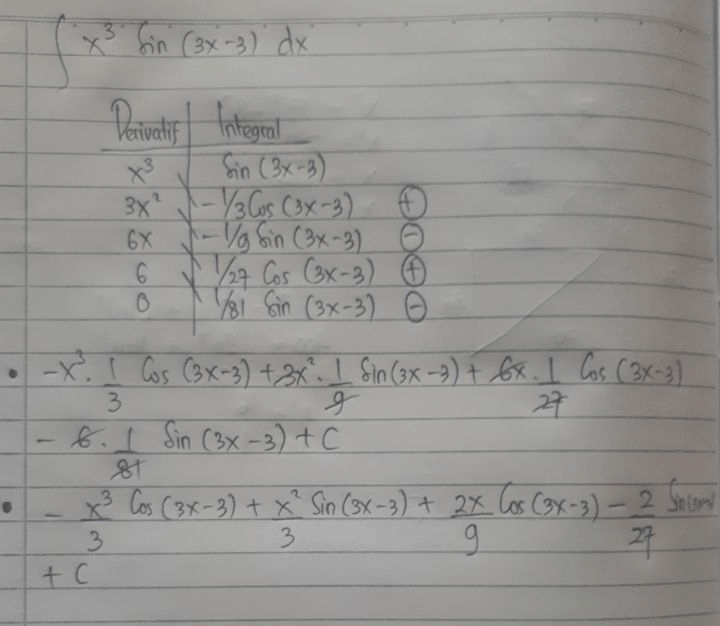 ∫ x³ Sin (3x-3) dx
Derivatif | Integral
x³ | Sin (3x-3)
3x² | - 1/3 Cos (3x-3) ⊕
6x | - 1/9 Sin (3x-3) ⊖
6 | 1/27 Cos (3x-3) ⊕
0 | 1/81 Sin (3x-3) ⊖
• -x³ . 1/3 Cos (3x-3) + 3x² . 1/9 Sin (3x-3) + 6x . 1/27 Cos (3x-3)
- 6 . 1/81 Sin (3x-3) + C
• - x³/3 Cos (3x-3) + x²/3 Sin (3x-3) + 2x/9 Cos (3x-3) - 2/27 Sin
+ C